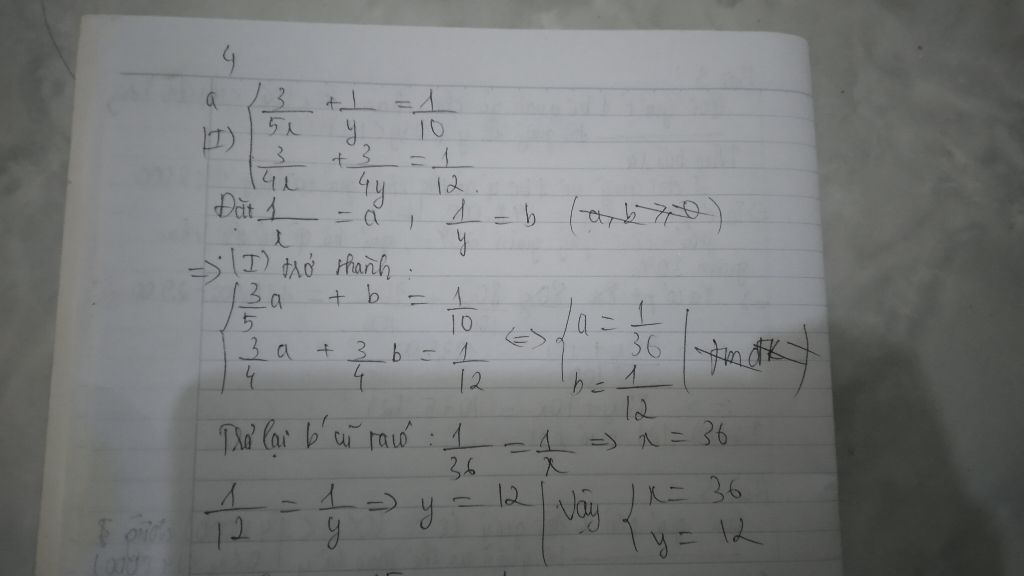 4
a (I) { 3/5x + 1/y = 1/10
3/4x + 3/4y = 1/12.
Đặt 1/x = a , 1/y = b
=> (I) trở thành :
{ 3/5 a + b = 1/10
3/4 a + 3/4 b = 1/12 <=> { a = 1/36
b = 1/12
Trở lại b' cũ ta có : 1/36 = 1/x => x = 36
1/12 = 1/y => y = 12 | Vậy { x = 36
y = 12